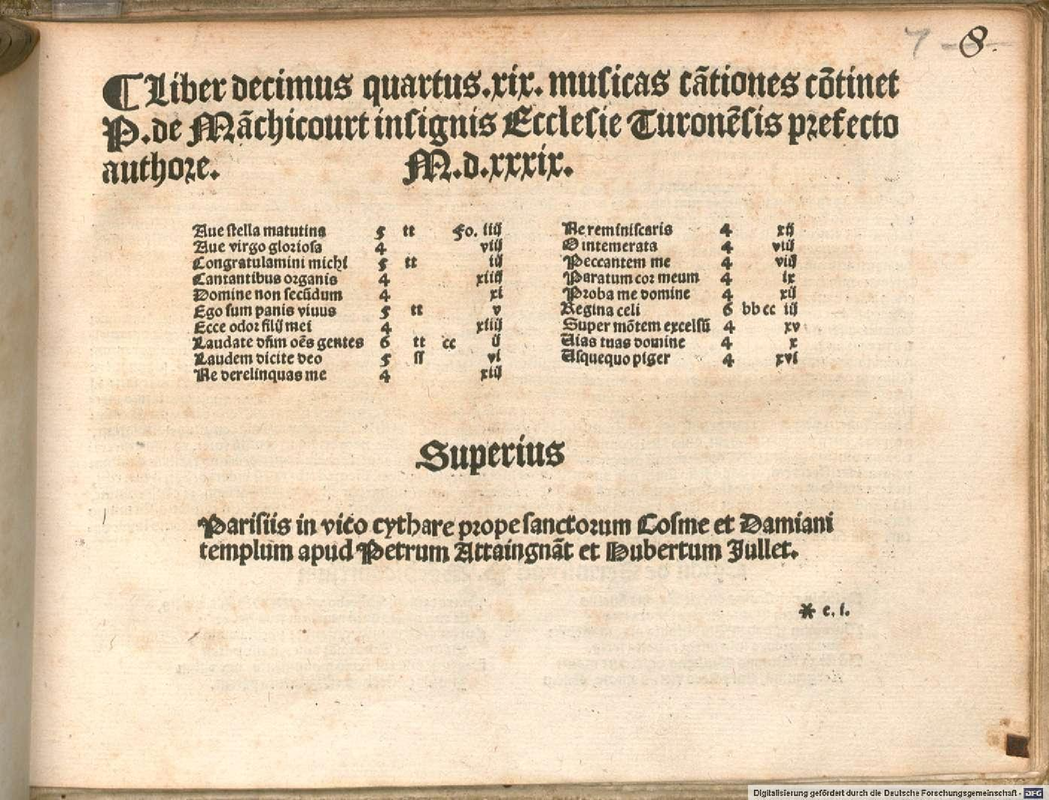 7 8.
¶ Liber decimus quartus. xix. musicas cãtiones cõtinet
P. de Mãchicourt insignis Ecclesie Turonẽsis prefecto
authore. M.d.xxxix.
Aue stella matutina 5 tt Fo. iiij
Aue virgo gloriosa 4 viij
Congratulamini michi 5 tt iij
Cantantibus organis 4 xiiij
Domine non secũdum 4 xi
Ego sum panis viuus 5 tt v
Ecce odor filij mei 4 xiij
Laudate dñm oẽs gentes 6 tt cc ij
Laudem dicite deo 5 ss vi
Ne derelinquas me 4 xiij
Ne reminiscaris 4 xij
O intemerata 4 viij
Peccantem me 4 viij
Paratum cor meum 4 ix
Proba me domine 4 xij
Regina celi 6 bb cc iij
Super mõtem excelsũ 4 xv
Uias tuas domine 4 x
Usquequo piger 4 xvi
Superius
Parisiis in vico cythare prope sanctorum Cosme et Damiani
templum apud Petrum Attaingnãt et Hubertum Jullet.
* c. i.
Digitalisierung gefördert durch die Deutsche Forschungsgemeinschaft - DFG